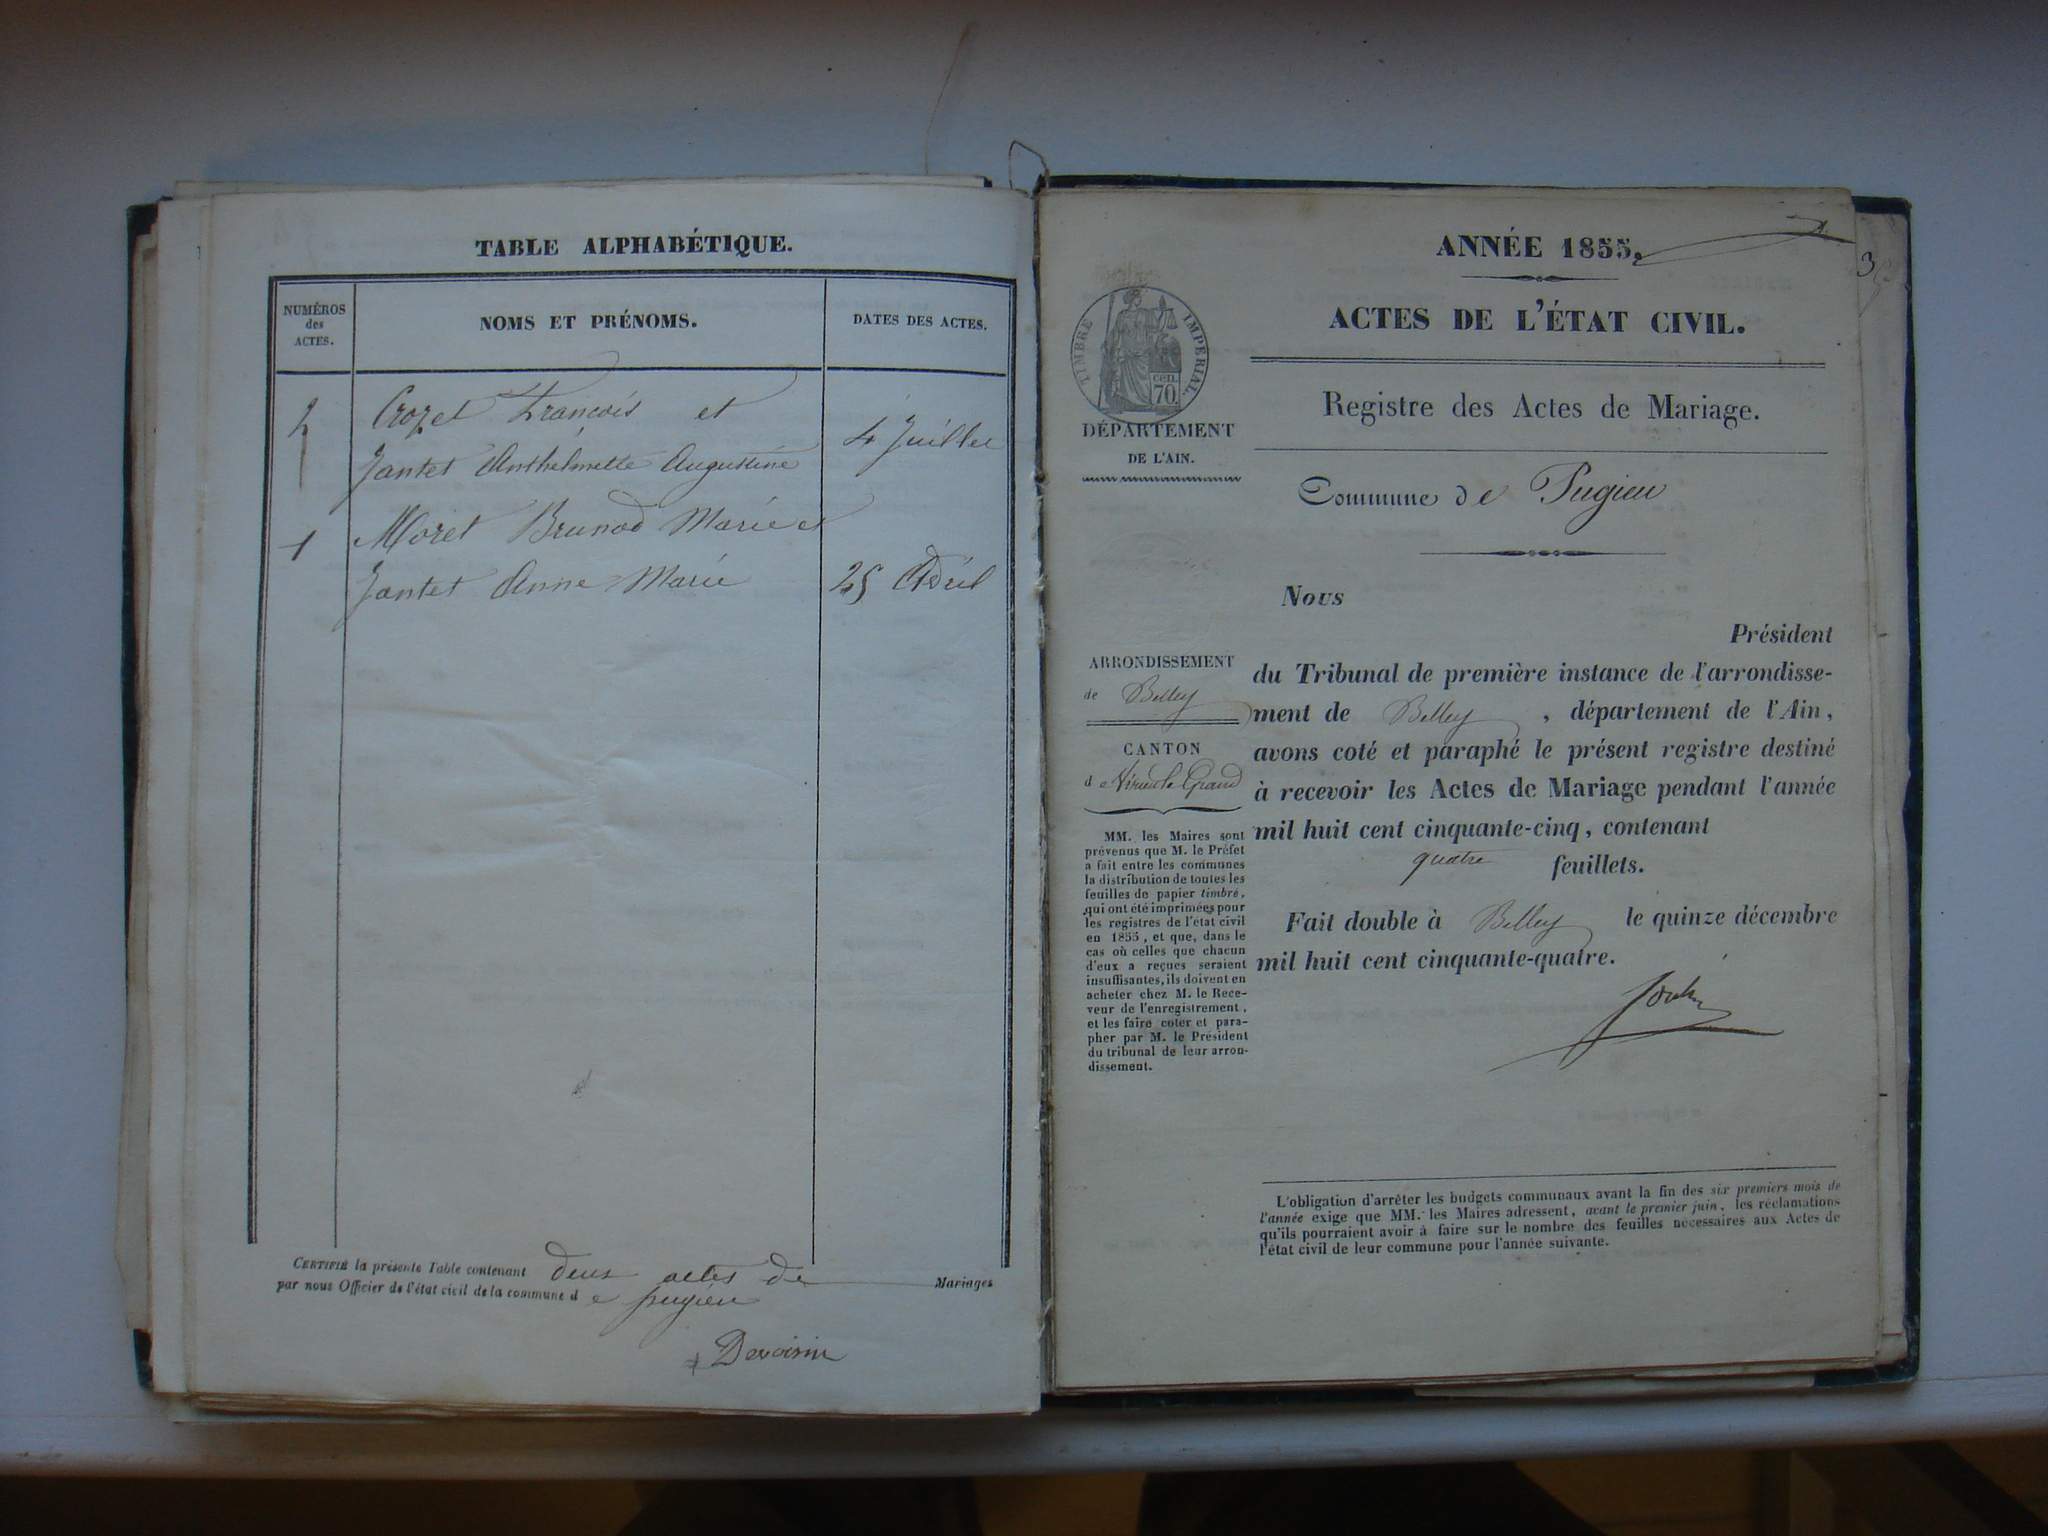 TABLE ALPHABÉTIQUE.
NUMÉROS
des
ACTES.
NOMS ET PRÉNOMS.
DATES DES ACTES.
2 Crozet François et
Jantet Anthelmette Augustine 4 Juillet
1 Moret Brunod Marie et
Jantet Anne Marie 25 Avril
CERTIFIÉ la présente Table contenant deux actes de Mariages
par nous Officier de l'état civil de la commune d e pugieu
Devoisin
ANNÉE 1855.
3
TIMBRE IMPERIAL.
CEN.
70.
ACTES DE L'ÉTAT CIVIL.
Registre des Actes de Mariage.
DÉPARTEMENT
DE L'AIN.
Commune de Pugieu
Nous
Président
du Tribunal de première instance de l'arrondisse-
ment de Belley, département de l'Ain,
avons coté et paraphé le présent registre destiné
à recevoir les Actes de Mariage pendant l'année
mil huit cent cinquante-cinq, contenant
quatre feuillets.
Fait double à Belley le quinze décembre
mil huit cent cinquante-quatre.
ARRONDISSEMENT
de Belley
CANTON
d e Virieu le Grand
MM. les Maires sont
prévenus que M. le Préfet
a fait entre les communes
la distribution de toutes les
feuilles de papier timbré,
qui ont été imprimées pour
les registres de l'état civil
en 1855, et que, dans le
cas où celles que chacun
d'eux a reçues seraient
insuffisantes, ils doivent en
acheter chez M. le Rece-
veur de l'enregistrement,
et les faire coter et para-
pher par M. le Président
du tribunal de leur arron-
dissement.
L'obligation d'arrêter les budgets communaux avant la fin des six premiers mois de
l'année exige que MM. les Maires adressent, avant le premier juin, les réclamations
qu'ils pourraient avoir à faire sur le nombre des feuilles nécessaires aux Actes de
l'état civil de leur commune pour l'année suivante.